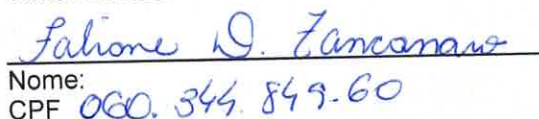 Fabione D. Zancanaro
Nome:
CPF 060. 344. 849-60